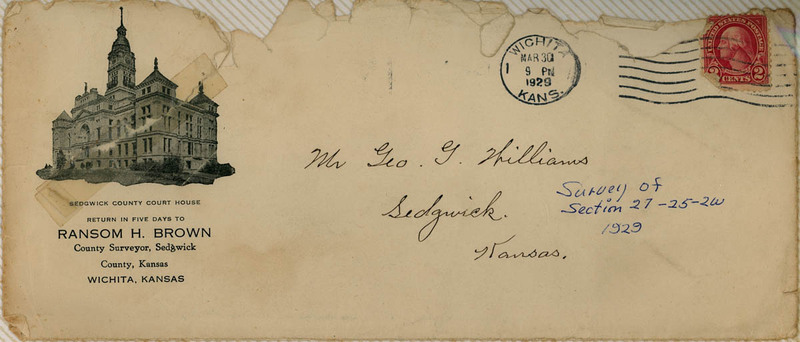 SEDGWICK COUNTY COURT HOUSE
RETURN IN FIVE DAYS TO
RANSOM H. BROWN
County Surveyor, Sedgwick
County, Kansas
WICHITA, KANSAS
WICHITA
MAR 30
9 PM
1929
KANS.
1
UNITED STATES POSTAGE
2 CENTS 2
Mr Geo. G. Williams
Sedgwick.
Kansas.
Survey of
Section 27-25-2W
1929